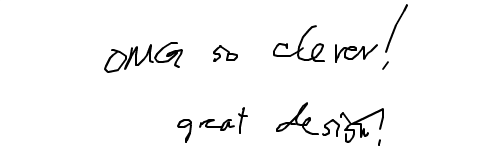 OMG so clever!
great design!